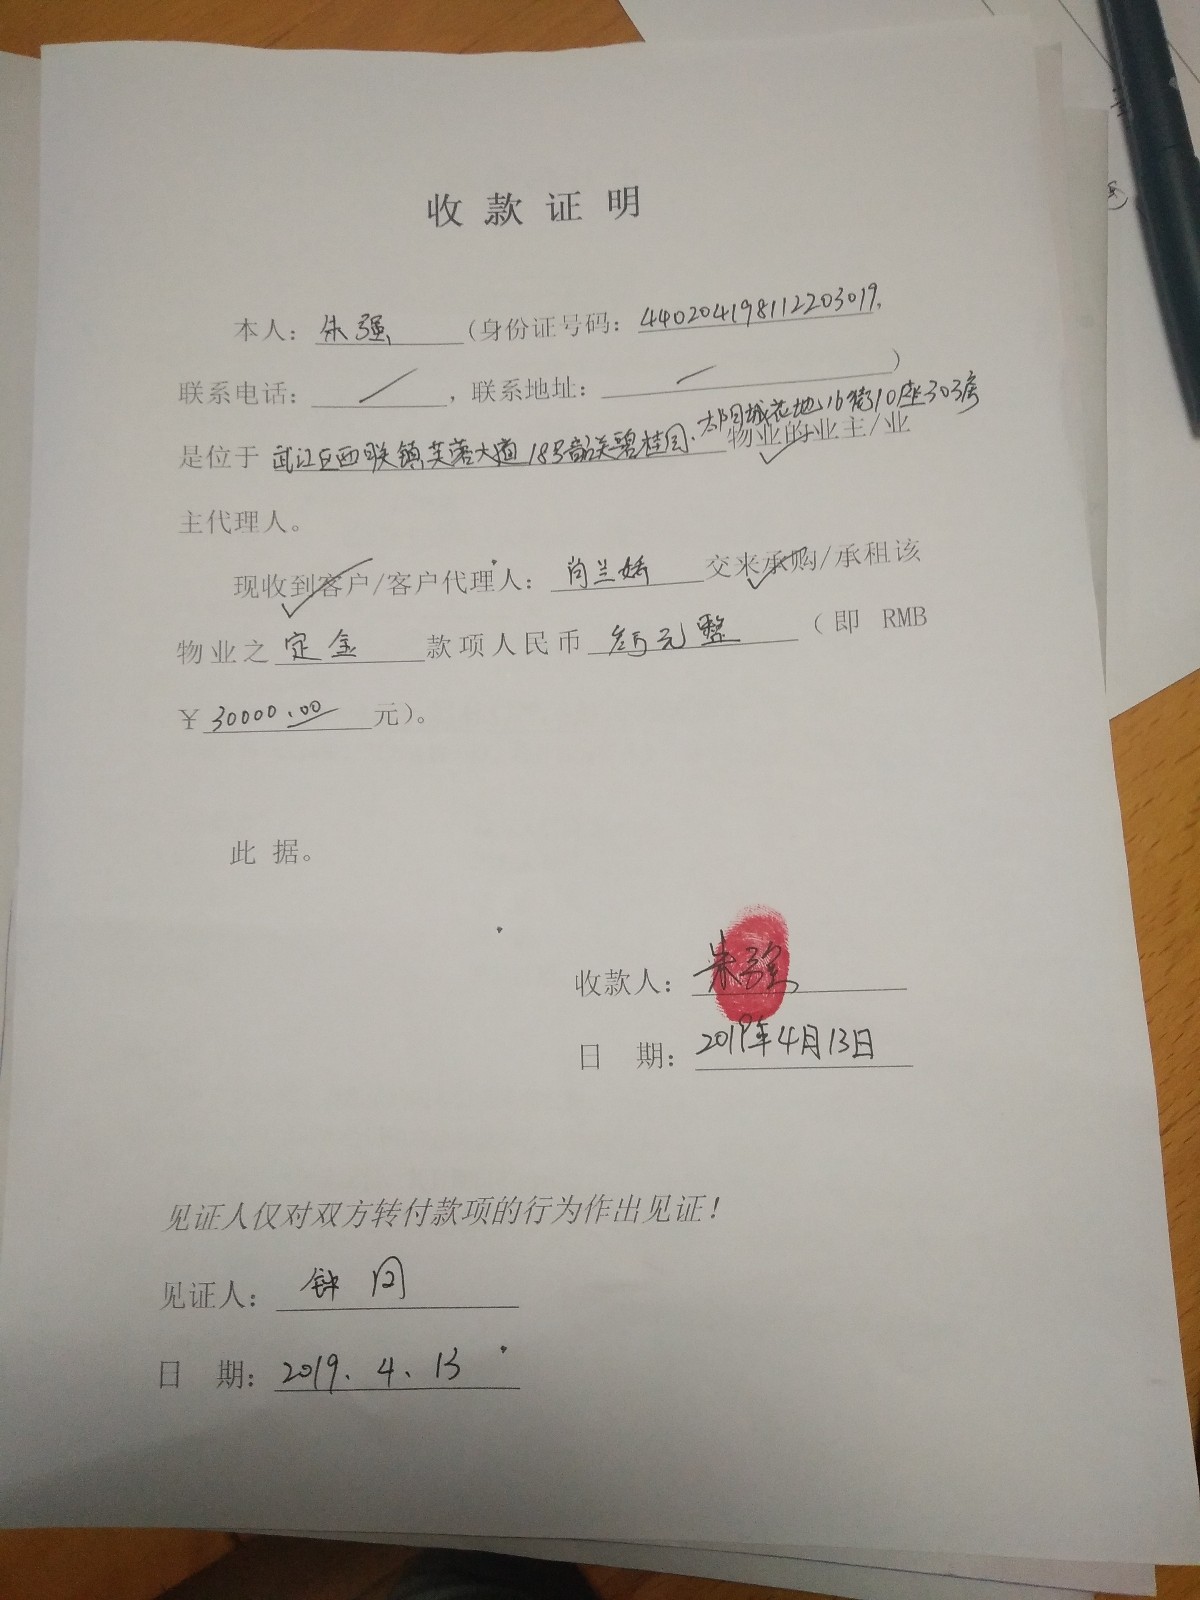 收款证明
本人：朱强（身份证号码：440204198112203019，
联系电话：／，联系地址：／）
是位于武江区西联镇芙蓉大道18号韶关碧桂园·太阳城花地16街10座303房物业的业主/业
主代理人。
现收到客户/客户代理人：肖兰娇交来承购/承租该
物业之定金款项人民币叁万元整（即 RMB
￥30000.00元）。
此据。
收款人：朱强
日 期：2019年4月13日
见证人仅对双方转付款项的行为作出见证！
见证人：钟
日 期：2019.4.13